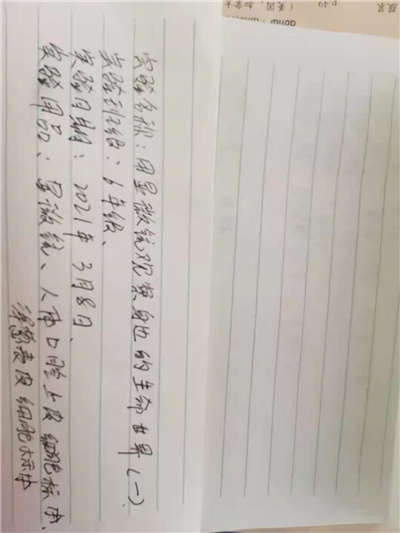 实验名称:用显微镜观察身边的生命世界(一)
实验班级:6年级、
实验日期:2021年3月8日、
实验用品:显微镜、人体口腔上皮细胞标本、
洋葱表皮细胞标本